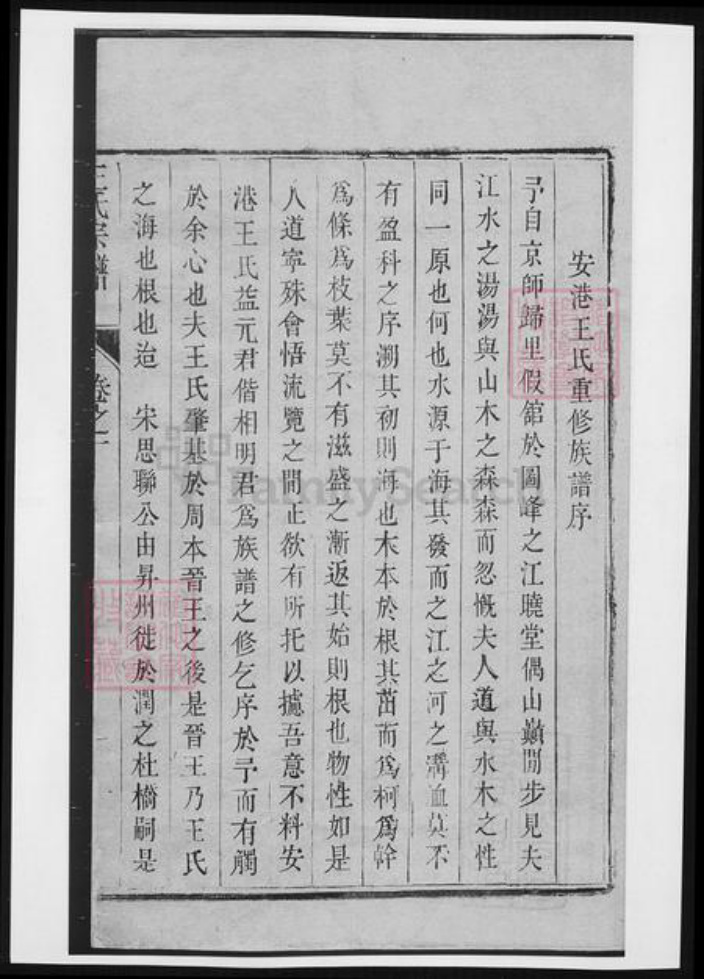 安港王氏重修族譜序
予自京師歸里假舘於圌峰之江曉堂偶山巔閒步見夫
江水之湯湯與山木之森森而忽慨夫人道與水木之性
同一原也何也水源于海其發而之江之河之溝洫莫不
有盈科之序溯其初則海也木本於根其茁而爲柯爲幹
爲條爲枝葉莫不有滋盛之漸返其始則根也物性如是
人道寜殊會悟流覽之間正欲有所托以攄吾意不料安
港王氏益元君偕相明君爲族譜之修乞序於予而有觸
於余心也夫王氏肇基於周本晉王之後是晉王乃王氏
之海也根也迨 宋思聯公由昇州徙於潤之杜橋嗣是
王氏宗譜 卷之一
FamilySearch